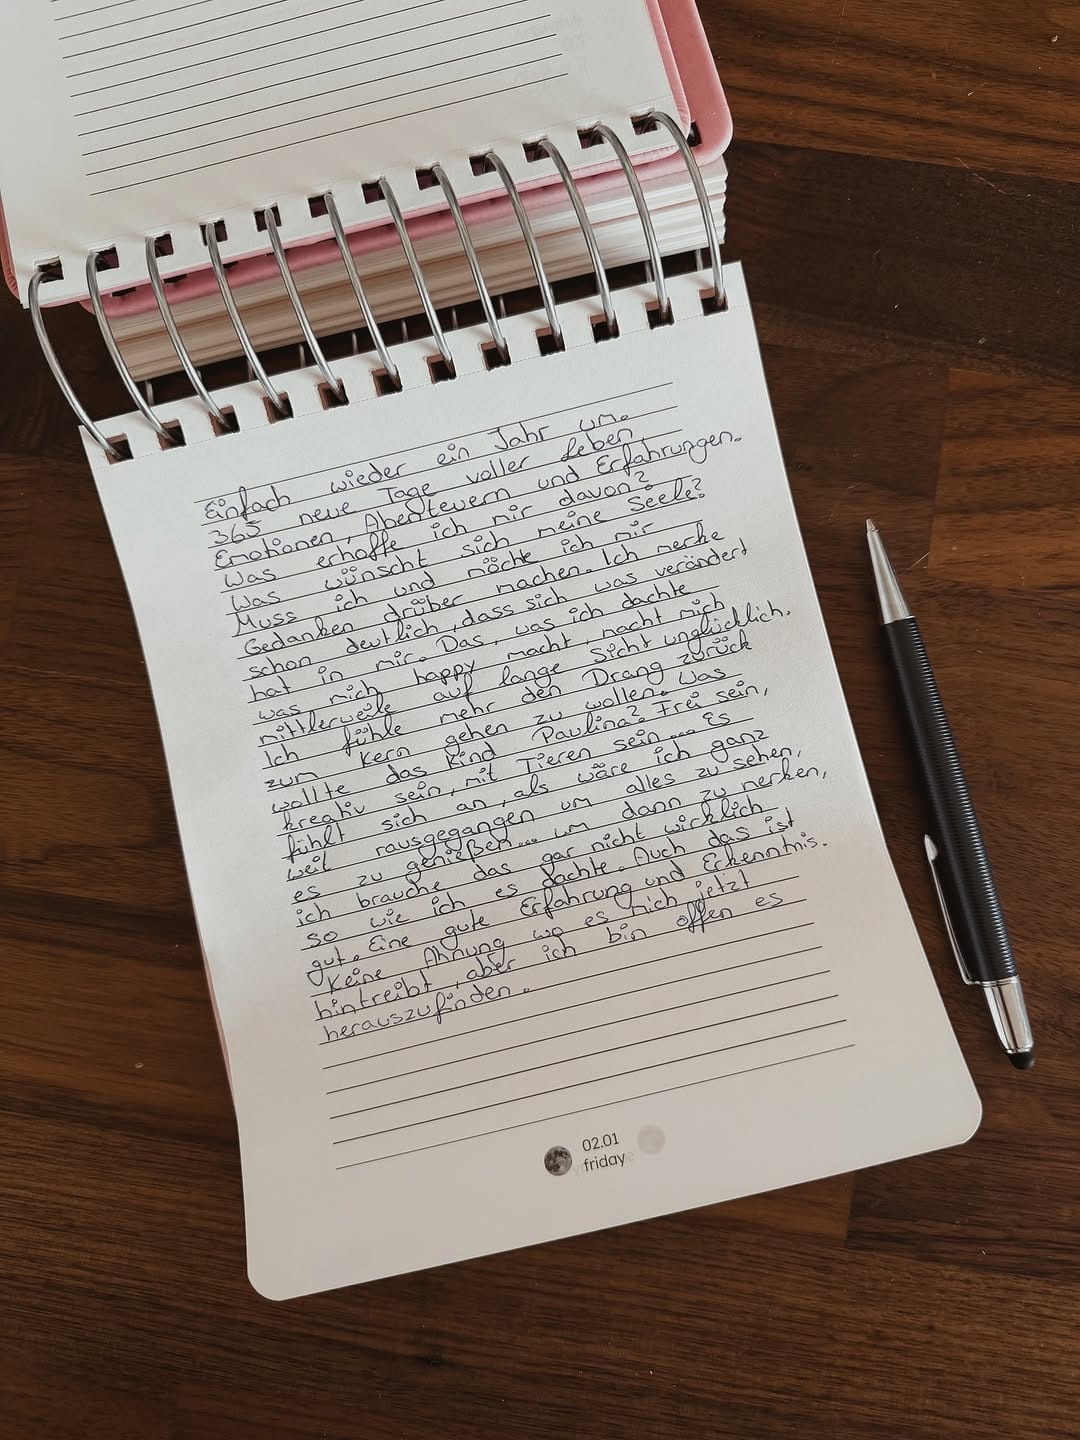 Einfach wieder ein Jahr um.
365 neue Tage voller Leben
Emotionen, Abenteuern und Erfahrungen.
Was erhoffe ich mir davon?
Was wünscht sich meine Seele?
Muss ich und möchte ich mir
Gedanken drüber machen. Ich merke
schon deutlich, dass sich was verändert
hat in mir. Das, was ich dachte
was mich happy macht, macht mich
mittlerweile auf lange Sicht unglücklich.
Ich fühle mehr den Drang zurück
zum Kern gehen zu wollen. Was
wollte das Kind Paulina? Frei sein,
kreativ sein, mit Tieren sein.... Es
fühlt sich an, als wäre ich ganz
weit rausgegangen um alles zu sehen,
es zu genießen... um dann zu merken,
ich brauche das gar nicht wirklich
so wie ich es dachte. Auch das ist
gut. Eine gute Erfahrung und Erkenntnis.
Keine Ahnung wo es mich jetzt
hintreibt, aber ich bin offen es
herauszufinden.
02.01
friday